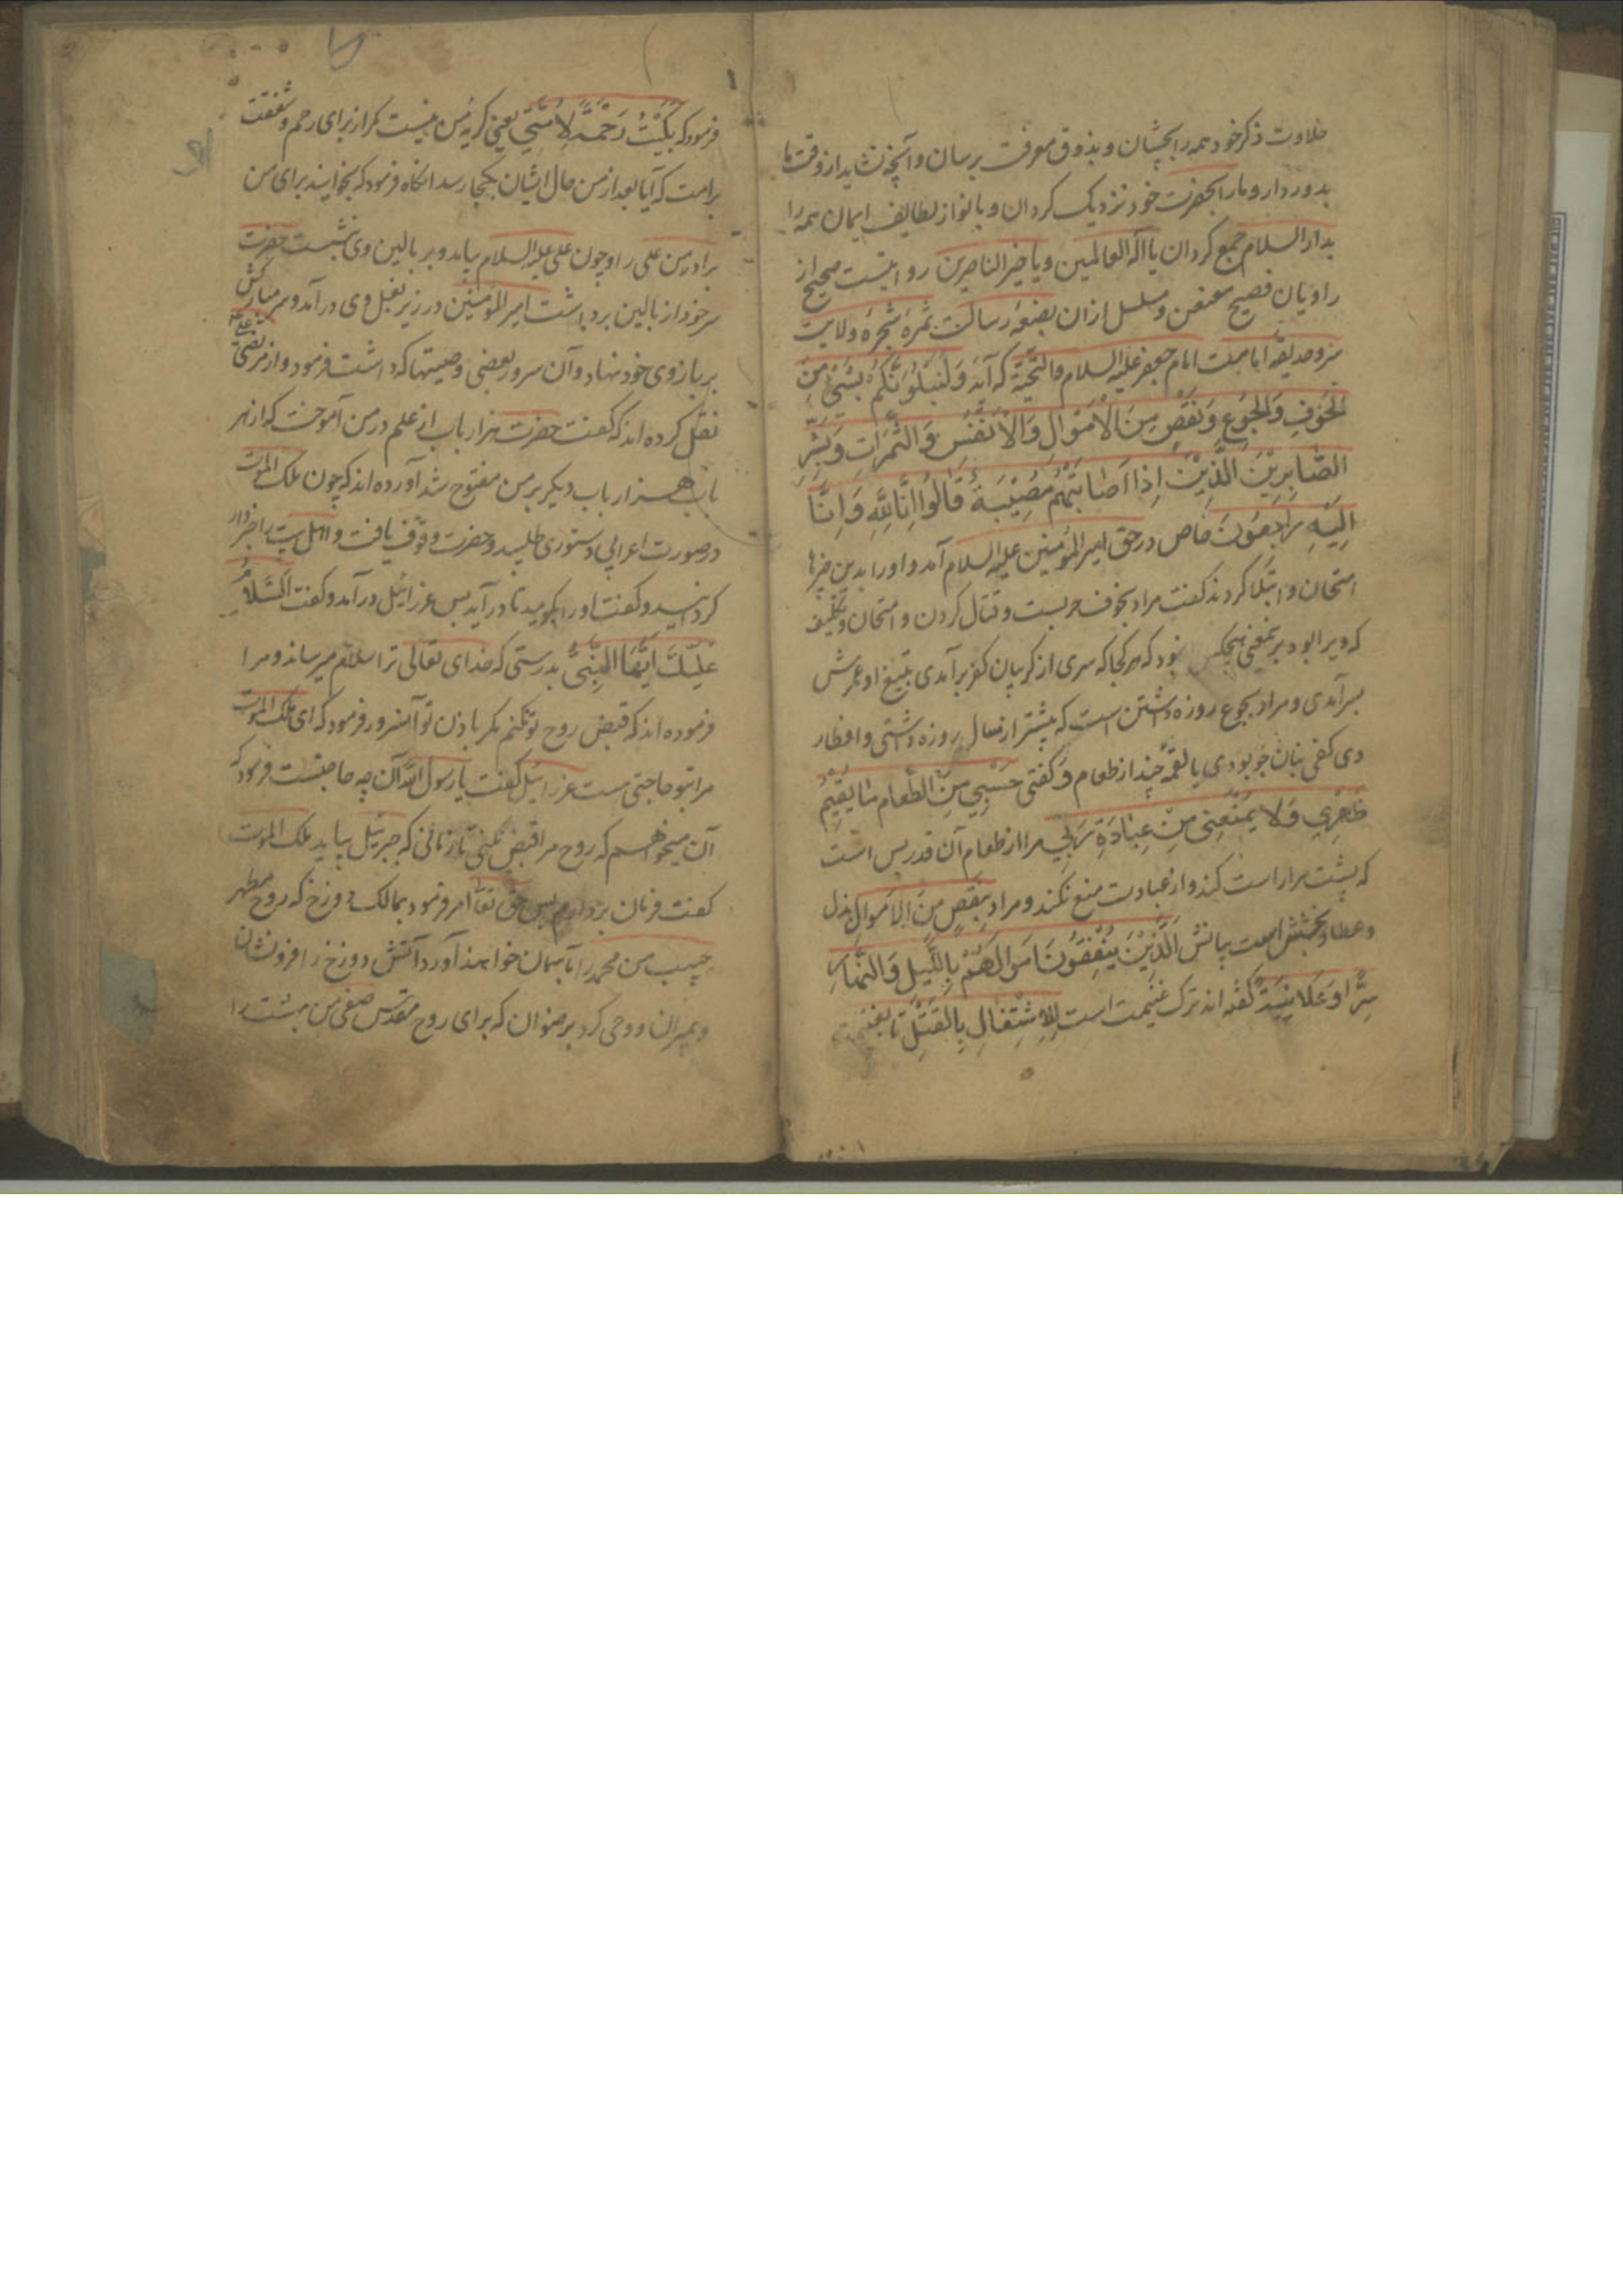 حلاوت ذکر خود همه را بچشان و بذوق معرفت برسان و آنچه نشاید از وقت ما
بدور دار و ما را بحضرت خود نزدیک کردان و بانواز لطایف ایمان همه را
بدار السلام جمع کردان یا اله العالمین و یا خیر الناصرین روایتست صحیح از
راویان فصیح معنعن و مسلسل از ان بضعهٔ رسالت ثمرهٔ شجرهٔ ولایت
امامت امام جعفر علیه السلام والتحیة که آیهٔ وَلَنَبْلُوَنَّكُمْ بِشَیْءٍ مِنَ
الْخَوْفِ وَالْجُوعِ وَنَقْصٍ مِنَ الْاَمْوَالِ وَالْاَنْفُسِ وَالثَّمَرَاتِ وَبَشِّرِ
الصَّابِرِیْنَ الَّذِیْنَ اِذَا اَصَابَتْهُمْ مُصِیْبَةٌ قَالُوا اِنَّا لِلَّهِ وَاِنَّا
اِلَیْهِ رَاجِعُوْنَ خاص در حق امیر المؤمنین علیه السلام آمد و او را بدین چیزها
امتحان و ابتلا کردند کفت مراد بخوف حربست و قتال کردن و امتحان و تکلیف
که ویرا بود بر تمغنی هیچکس نبود که هرکجا که سری از کریبان کفر برآمدی بتیغ او عمرش
بسر آمدی و مراد بجوع روزه داشتن است که بیشتر از سال روزه داشتی و افطار
وی کفی بنان جو بودی یا لقمهٔ چند از طعام وَ کفتی حَسْبِی مِنَ الطَّعَامِ مَا یُقِیْمُ
ظَهْرِی وَلَا یَمْنَعُنِی مِنْ عِبَادَةِ رَبِّی مرا از طعام آن قدر بس است
که پشت مرا راست کند و از عبادت منع نکند و مراد بِنَقْصٍ مِنَ الْاَمْوَالِ بذل
و عطا و بخشش است بیانش اَلَّذِیْنَ یُنْفِقُوْنَ اَمْوَالَهُمْ بِاللَّیْلِ وَالنَّهَارِ
سِرًّا وَعَلَانِیَةً کفته اند ترک غنیمت است لِلْاِشْتِغَالِ بِالْقَتْلِ تا بغنیمت
فرمود که بَکَیْتُ رَحْمَةً لِاُمَّتِی یعنی کریهٔ من نیست مکر از برای رحم و شفقت
بر امت که آیا بعد از من حال ایشان بکجا رسد انکاه فرمود که بخوانید برای من
برادر من علی را و چون علی علیه السلام بیامد و بر بالین وی نشست حضرت
سر خود از بالین برداشت امیر المؤمنین در زیر بغل وی درآمد و سر مبارکش
بر بازوی خود نهاد و آن سرور بعضی وصیتها که داشت فرمود و از مرتضی علی
نقل کرده اند که کفت حضرت هزار باب از علم در من آموخت که از هر
باب هزار باب دیکر بر من مفتوح شد آورده اند که چون ملک الموت
در صورت اعرابی دستوری طلبید و حضرت وقوف یافت و اهل بیت را خبردار
کردانید و کفت او را بکویید تا درآید پس عزرائیل درآمد و کفت اَلسَّلَامُ
عَلَیْكَ اَیُّهَا النَّبِیُّ بدرستی که خدای تعالی ترا سلام میرساند و مرا
فرموده اند که قبض روح تو نکنم مکر باذن تو آنسرور فرمود که ای ملک الموت
مرا بتو حاجتی هست عزرائیل کفت یا رسول الله آن چه حاجتست فرمود که
آن میخواهم که روح مرا قبض نکنی تا زمانی که جبرئیل بیاید ملک الموت
کفت فرمان بردارم پس حق تعا امر فرمود بمالک دوزخ که روح مطهر
حبیب من محمد را بآسمان خواهند آورد آتش دوزخ را فرو نشان
و بمیران و وحی کرد برضوان که برای روح مقدس صفی من بهشت را